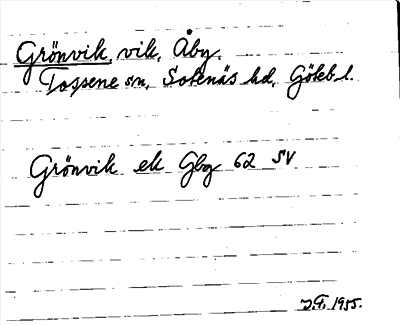 Grönvik, vik, Åby,
Tossene sn, Sotenäs hd, Göteb l.
Grönvik ek Gbg 62 SV
1955.